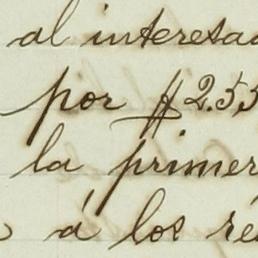 al interesa
por $255
la primer
á los ré